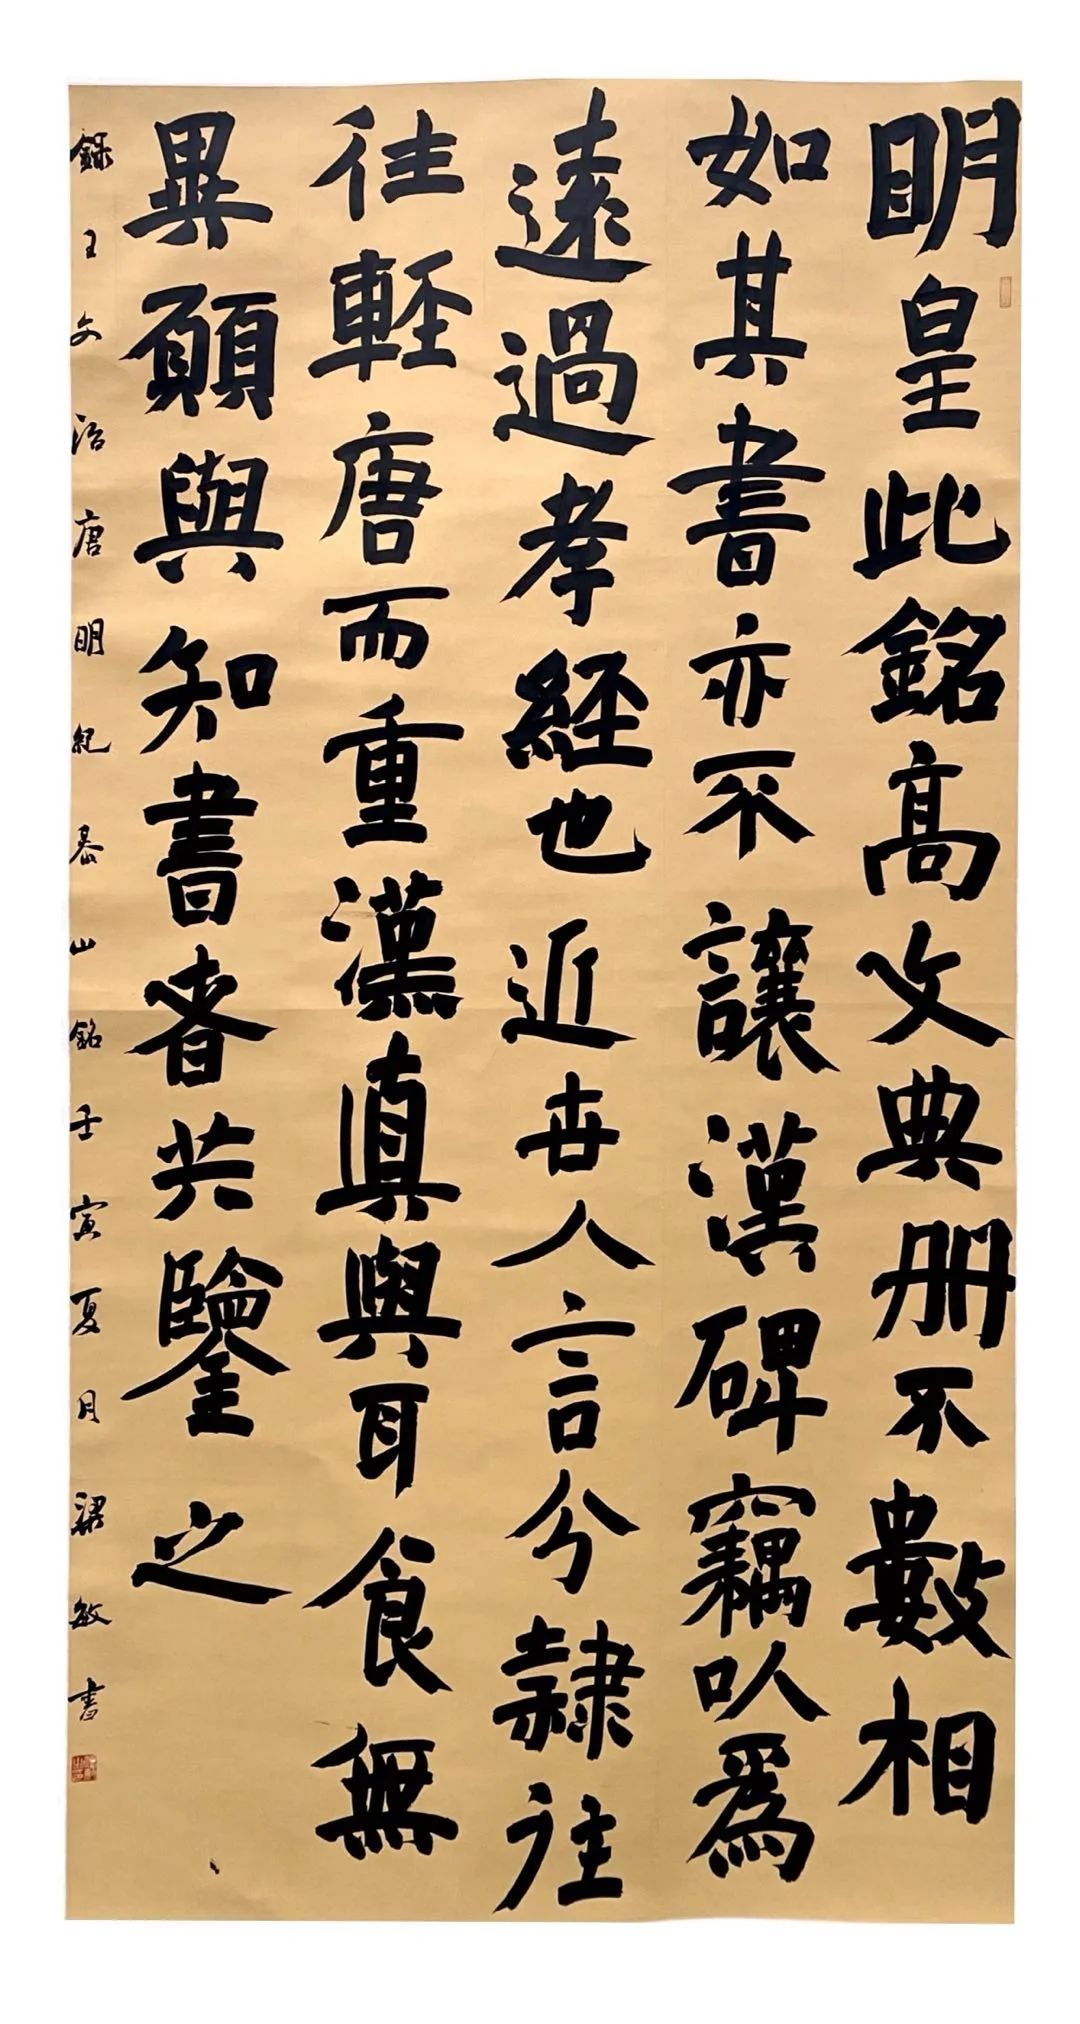 明皇此銘高文典册不數相
如其書亦不讓漢碑竊以爲
遠過孝經也近世人言分隸往
往輕唐而重漢真與耳食無
異願與知書者共鑒之
録王文治唐明紀泰山銘壬寅夏月梁敏書